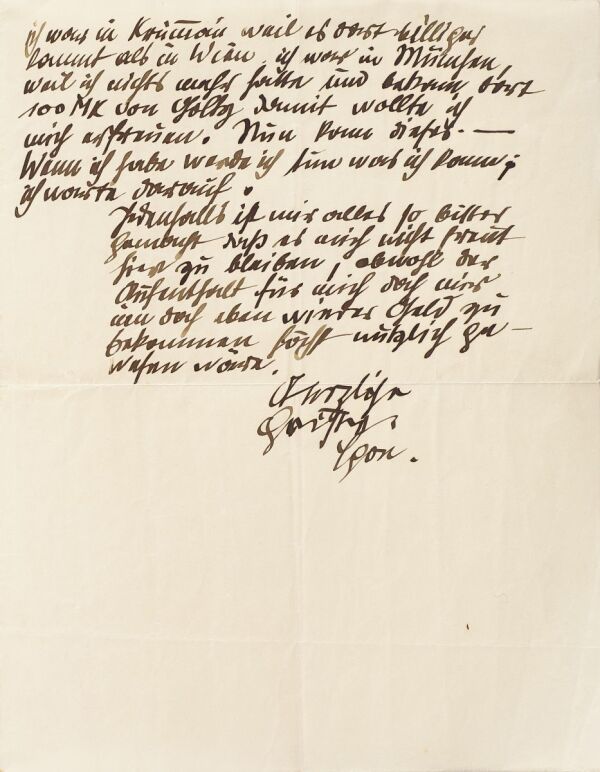 ich war in Krumau weil es dort billiger
kommt als in Wien, ich war in München,
weil ich nichts mehr hatte und bekam dort
100 MK von Goltz damit wollte ich
mich erfreuen. Nun kam dieses. —
Wenn ich habe werde ich tun was ich kann;
ich warte darauf.
Jedenfalls ist mir alles so bitter
gemacht daß es mich nicht freut
hier zu bleiben, obwohl der
Aufenthalt für mich doch
um doch eben wieder Geld zu
bekommen höchst nützlich ge-
wesen wäre.
Herzliche
Grüsse
Egon.